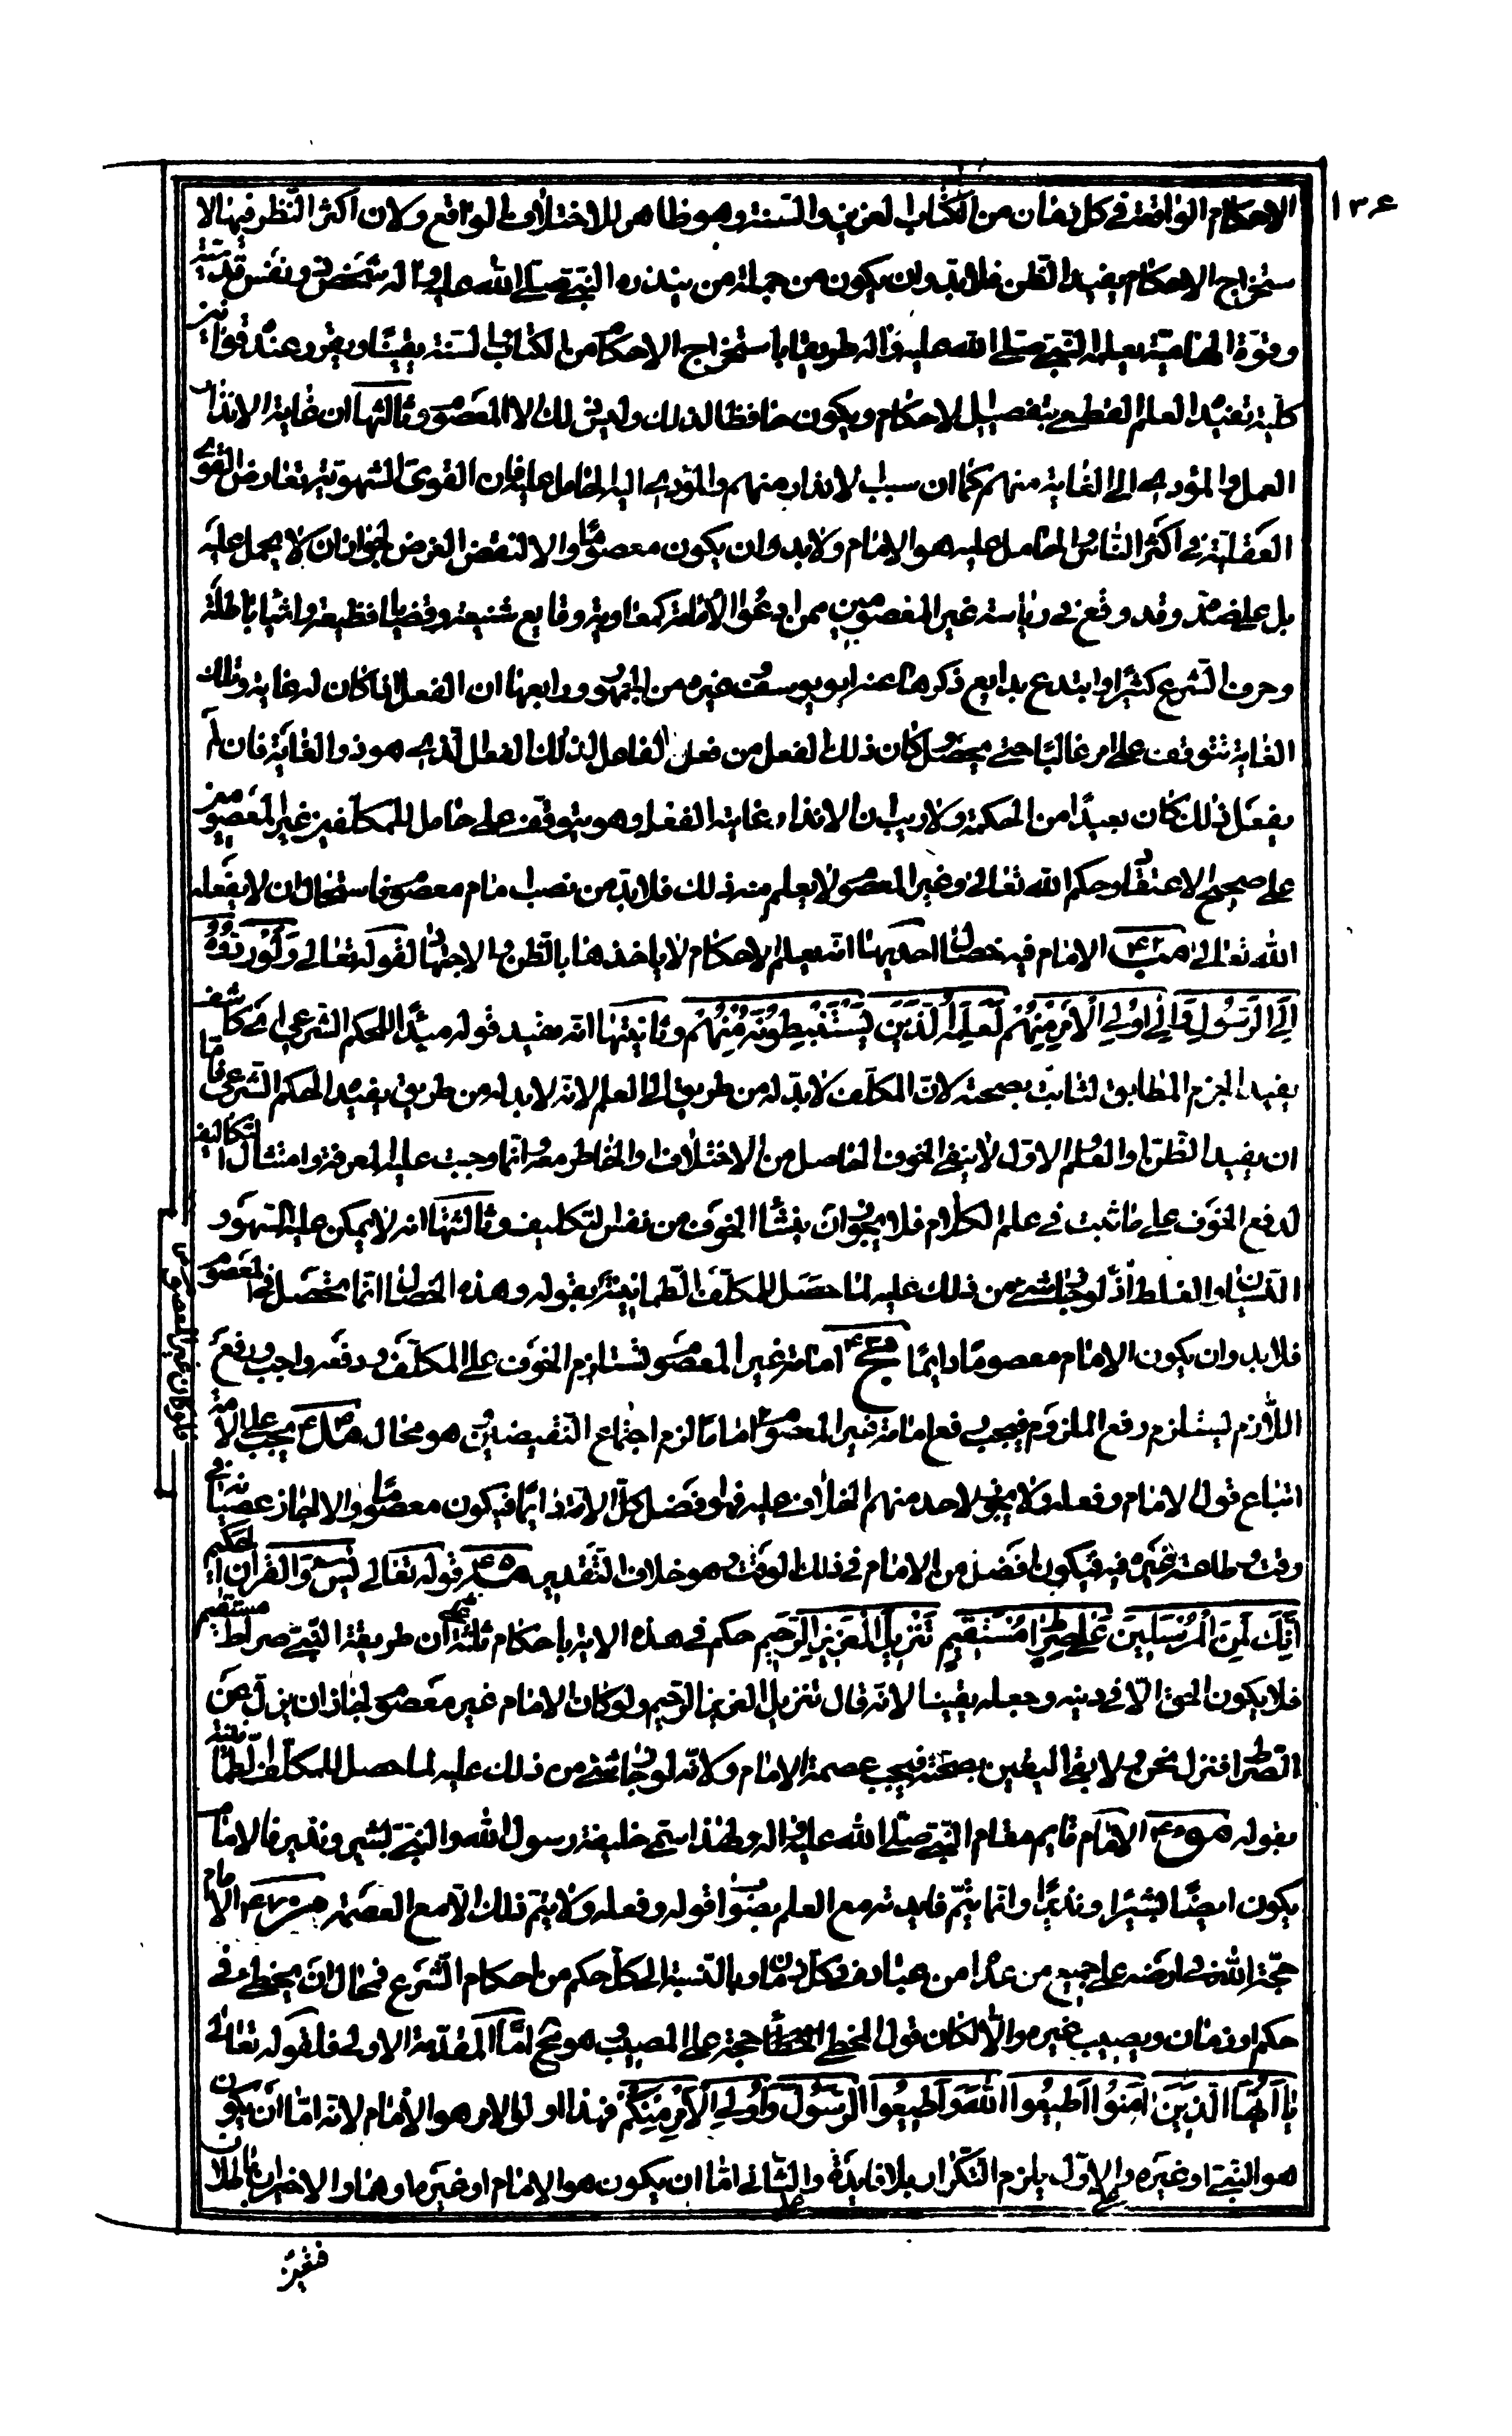 ١٣٤
الاحكام الواقعة في كل زمان من الكتاب العزيز والسنة وهو ظاهر للاختلاف الواقع ولان اكثر النظر فيها لا
ستخراج الاحكام يفيد الظن فلابد وان يكون من جملة من ينذره النبي صلى الله عليه وآله شخص ذو نفس قدسية
وقوة الهامية يعلمه النبي صلى الله عليه وآله طريقا باستخراج الاحكام من الكتاب والسنة يقينا ويقرر عنده قوانين
كلية تفيد العلم القطعي بتفصيل الاحكام ويكون حافظا لذلك وليس ذلك الا المعصوم وثالثها ان غاية الانذار
العمل والمؤدي الى الغاية منهم كما ان سبب الانذار منهم والمؤدي اليه الحامل عليه فان القوى الشهوية تعارض القوى
العقلية في اكثر الناس والحامل عليه هو الامام ولا بد وان يكون معصوما والا لنقض الغرض لجواز ان لا يحمل عليه
بل على ضده وقد وقع في رياسة غير المعصومين ممن ادعوا الامامة كمعاوية وقايع شنيعة وقضيا فظيعة واشيا باطلة
وحرف الشرع كثيرا وابتدع بدايع ذكرها عنه ابو يوسف وغيره من الجمهور ورابعها ان الفعل اذا كان له غاية وتلك
الغاية تتوقف على امر غالبا حتى يحصل كان ذلك الفعل من فعل الفاعل لذلك الفعل الذي هو ذو الغاية فان لم
يفعل ذلك كان بعيدا من الحكمة ولا ريب ان الانذار غايته الفعل وهو يتوقف على حامل للمكلفين غير المعصومين
على صحيح الاعتقاد وحكم الله تعالى وغير المعصوم لا يعلم منه ذلك فلابد من نصب امام معصوم فاستحال ان لا يفعله
الله تعالى الامام فيه خصال احديها انه يعلم الاحكام لا ياخذها بالظن والاجتهاد لقوله تعالى ولو ردوه
الى الرسول والى اولي الامر منهم لعلمه الذين يستنبطونه منهم وثانيتها انه يفيد قوله مبدأ للحكم الشرعي اي كاشف
يفيد الجزم المطابق الثابت بصحته لان المكلف لابد له من طريق الى العلم لانه لا بد له من طريق يفيد الحكم الشرعي فاما
ان يفيد الظن او العلم الاول لا ينفي الخوف الحاصل من الاختلاف والخاطر معه انما وجبت عليه المعرفة وامتثال التكاليف
لدفع الخوف على ما ثبت في علم الكلام فلا يجوز ان ينشأ الخوف من نفس التكليف وثالثتها انه لا يمكن عليه السهو و
النسيان والغلط اذ لو جاز شيء من ذلك عليه لما حصل للمكلف الطمانينة بقوله وهذه الخصال انما تحصل في المعصوم
فلابد وان يكون الامام معصوما دايما امامة غير المعصوم تستلزم الخوف على المكلف ودفعه واجب ورفع
اللازم يستلزم رفع الملزوم فيجب رفع امامة غير المعصوم اماما لزم اجتماع النقيضين وهو محال يجب على الامة
اتباع قول الامام وفعله ولا يجوز لاحد منهم الخلاف عليه فهو افضل كل الامة دايما فيكون معصوما والا لجاز عصيانه في
وقت وطاعة غيره فيه فيكون افضل من الامام في ذلك الوقت وهو خلاف التقدير قوله تعالى يس والقرآن الحكيم
انك لمن المرسلين على صراط مستقيم تنزيل العزيز الرحيم حكم في هذه الاية باحكام ثلثة ان طريقة النبي صراط مستقيم
فلا يكون الحق الا في دينه وجعله يقينا لانه قال تنزيل العزيز الرحيم ولو كان الامام غير معصوم لجاز ان يزل عن
الصراط ولا يبقى اليقين بصحته فيجب عصمة الامام ولانه لو جاز شيء من ذلك عليه لما حصل للمكلف الطمأنينة
بقوله الامام قايم مقام النبي صلى الله عليه وآله ولهذا سمي خليفة رسول الله والنبي بشير ونذير فالامام
يكون ايضا بشيرا ونذيرا وانما يتم فايدته مع العلم بصواب قوله وفعله ولا يتم ذلك الا مع العصمة الامام
حجة الله في ارضه على جميع من عدا من عباده في كل زمان وبالنسبة الى كل حكم من احكام الشرع فمحال ان يخطى في
حكم او زمان ويصيب غيره والا لكان قول المخطى الخطأ حجة على المصيب وهو مح اما المقدمة الاولى فلقوله تعالى
يا ايها الذين امنوا اطيعوا الله واطيعوا الرسول واولي الامر منكم فهذا اولى الامر هو الامام لانه اما ان يكون
هو النبي او غيره والاول يلزم التكرار بلا فايدة والثاني اما ان يكون هو الامام او غيره او هما والاخيران باطلان
لو كان غير المعصوم